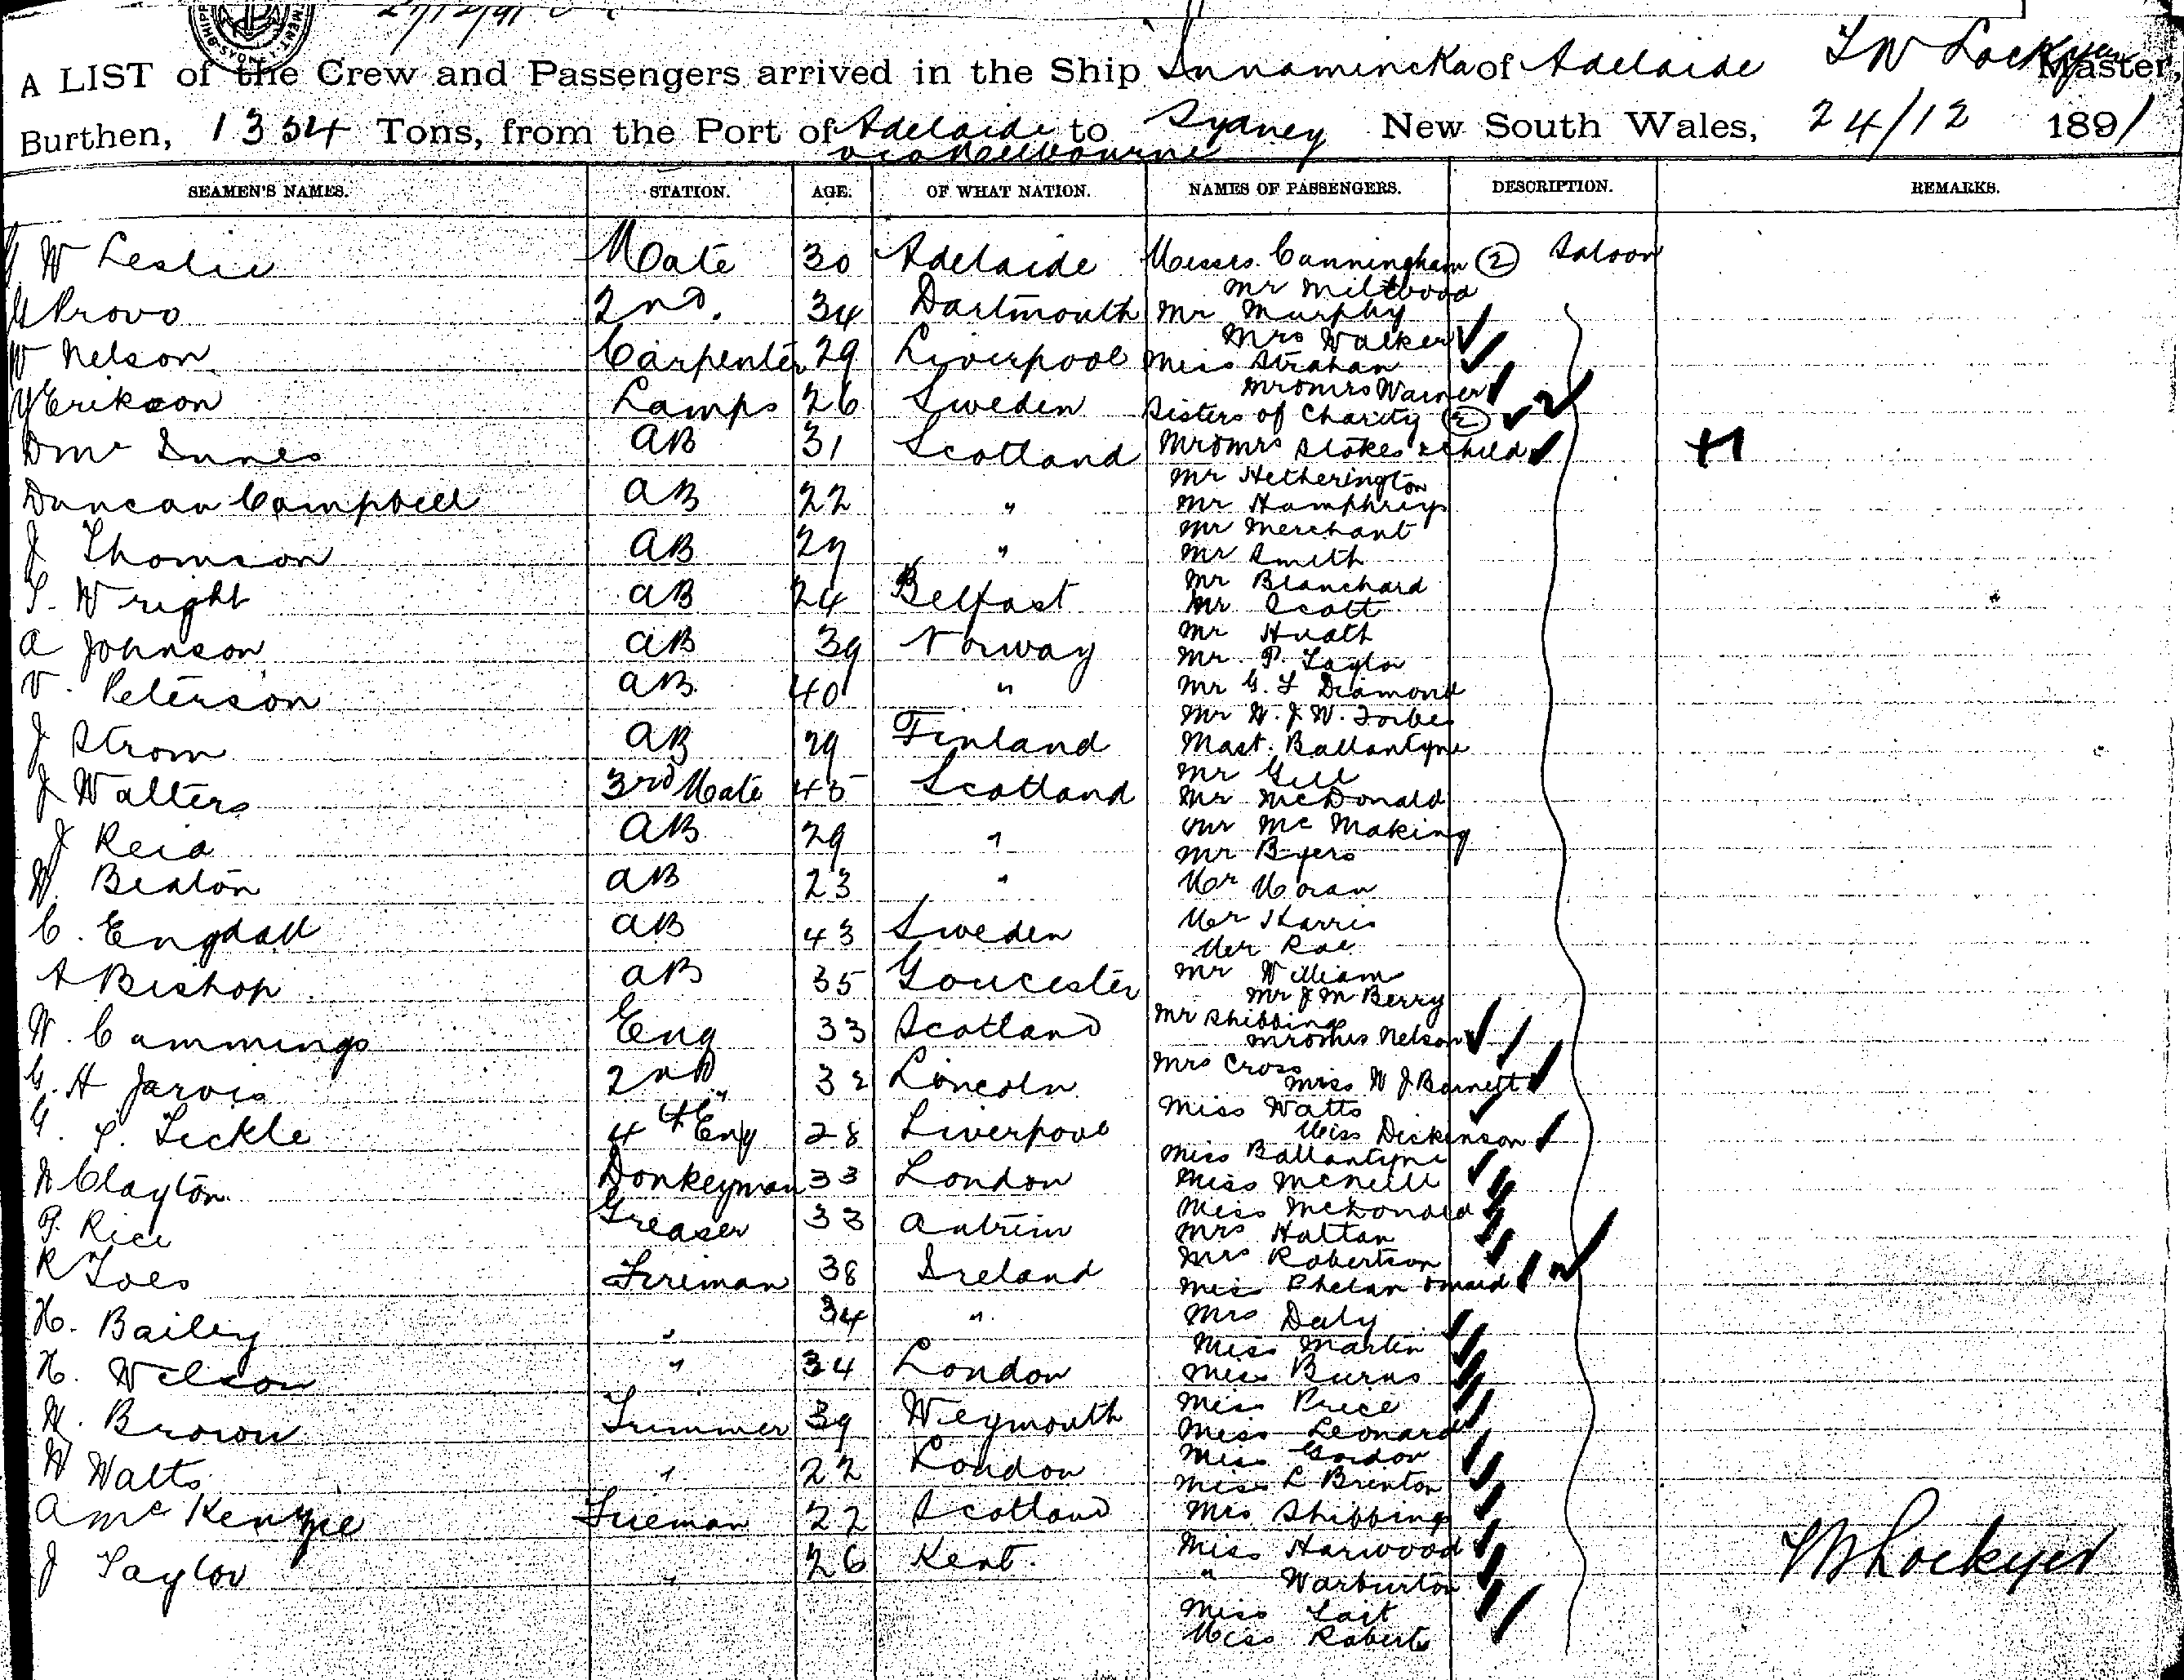 27/12/91
A LIST of the Crew and Passengers arrived in the Ship Innamincka of Adelaide T W Lockyer Master,
Burthen, 1354 Tons, from the Port of Adelaide to Sydney New South Wales, 24/12 1891
via Melbourne
SEAMEN'S NAMES. STATION. AGE. OF WHAT NATION. NAMES OF PASSENGERS. DESCRIPTION. REMARKS.
W Leslie Mate 30 Adelaide Messrs Cunningham (2) Saloon
Mr Miltwood
G Provo 2nd. 34 Dartmouth Mr Murphy
Mrs Walker
W Nelson Carpenter 29 Liverpool Miss Strahan
Mr & Mrs Warner
Y Erikson Lamps 26 Sweden Sisters of Charity (2)
D Mc Innes AB 31 Scotland Mr & Mrs Stokes & child
Mr Hetherington
Duncan Campbell AB 22 " Mr Humphreys
Mr Merchant
J Thomson AB 27 " Mr Smith
Mr Blanchard
Wright AB 24 Belfast Mr Scott
Mr Huath
A Johnson AB 39 Norway Mr P. Taylor
V. Peterson AB 40 " Mr G. F Diamond
Mr W. J W. Forbes
J Strom AB 29 Finland Mast. Ballantyne
Mr Gill
J Walters 3rd Mate 45 Scotland Mr McDonald
Mr Mc Making
J Reid AB 29 " Mr Byers
W. Beaton AB 23 " Mr Moran
C. Engdall AB 43 Sweden Mr Harris
Mr Rae
A Bishop AB 35 Goucester Mr William
Mr J M Berry
W. Cummings Eng 33 Scotland Mr Shibbing
Mr & Mrs Nelson
G. H Jarvis 2nd " 32 Lincoln Mrs Cross
Miss W J Barnett
Miss Watts
G. T. Tickle 4th Eng 28 Liverpool Miss Dickinson
Miss Ballantyne
W Clayton 33 Donkeyman London Miss McNeill
Miss McDonald
P. Rice Greaser 33 Antrim Mrs Hattan
Mrs Robertson
R Toes Fireman 38 Ireland Miss Phelan & maid
H. Bailey " 34 " Mrs Daly
Miss Martin
H. Wilson " 34 London Miss Burns
Miss Price
W. Brown Trimmer 39 Weymouth Miss Leonard
Miss Gordon
W Watts " 22 London Miss L Brenton
A Mc Kenzie Fireman 22 Scotland Mrs Shibbing
Miss Harwood
J Taylor " 26 Kent. " Warburton
Miss Tait
Miss Roberts
T W Lockyer